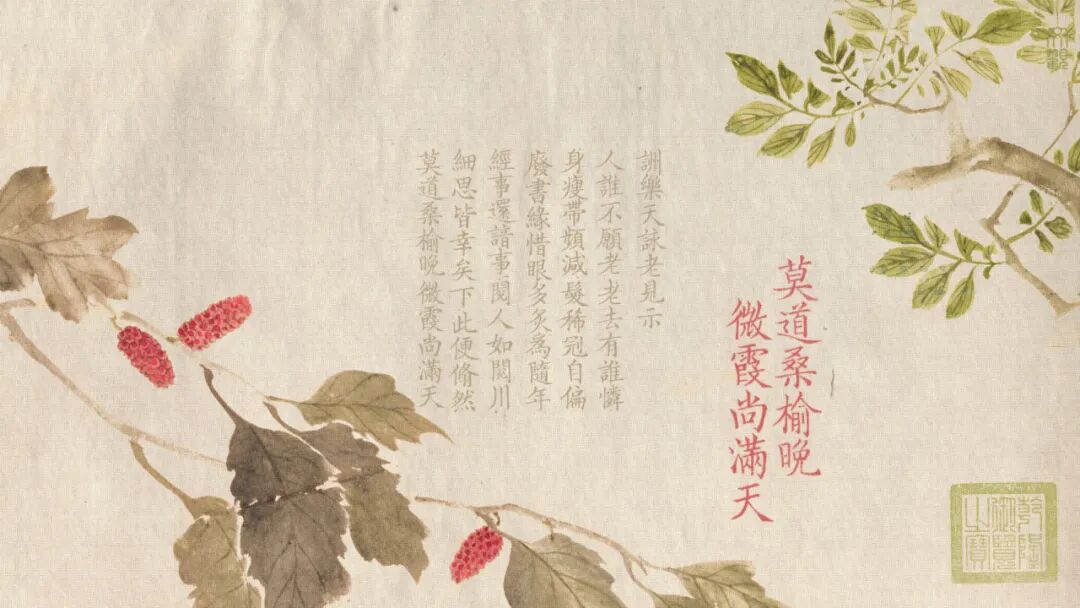 莫道桑榆晚
微霞尚滿天
詶樂天詠老見示
人誰不願老老去有誰憐
身瘦帶頻減髮稀冠自偏
廢書緣惜眼多炙為隨年
經事還諳事閱人如閱川
細思皆幸矣下此便翛然
莫道桑榆晚微霞尚滿天
乾隆
御覽
之寶